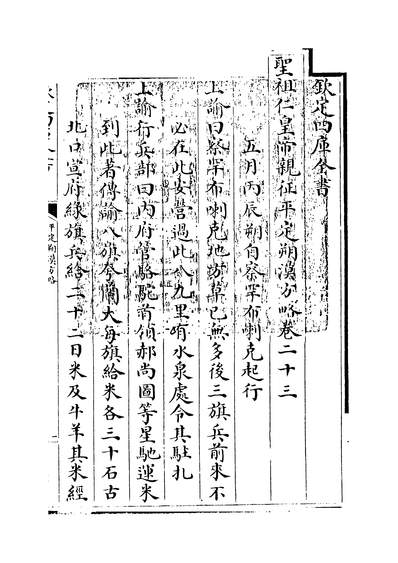 欽定四庫全書
聖祖仁皇帝親征平定朔漠方略卷二十三
五月丙辰朔自察罕布喇克起行
上諭曰察罕布喇克地方草已無多後三旗兵前來不
必在此安營過此八九里有水泉處令其駐扎
上諭行兵部曰內府管駱駝首領郝尚圖等星馳運米
到此著傳諭八旗夸蘭大每旗給米各三十石古
北口宣府綠旗兵給二十二日米及牛羊其米經
平定朔漠方略